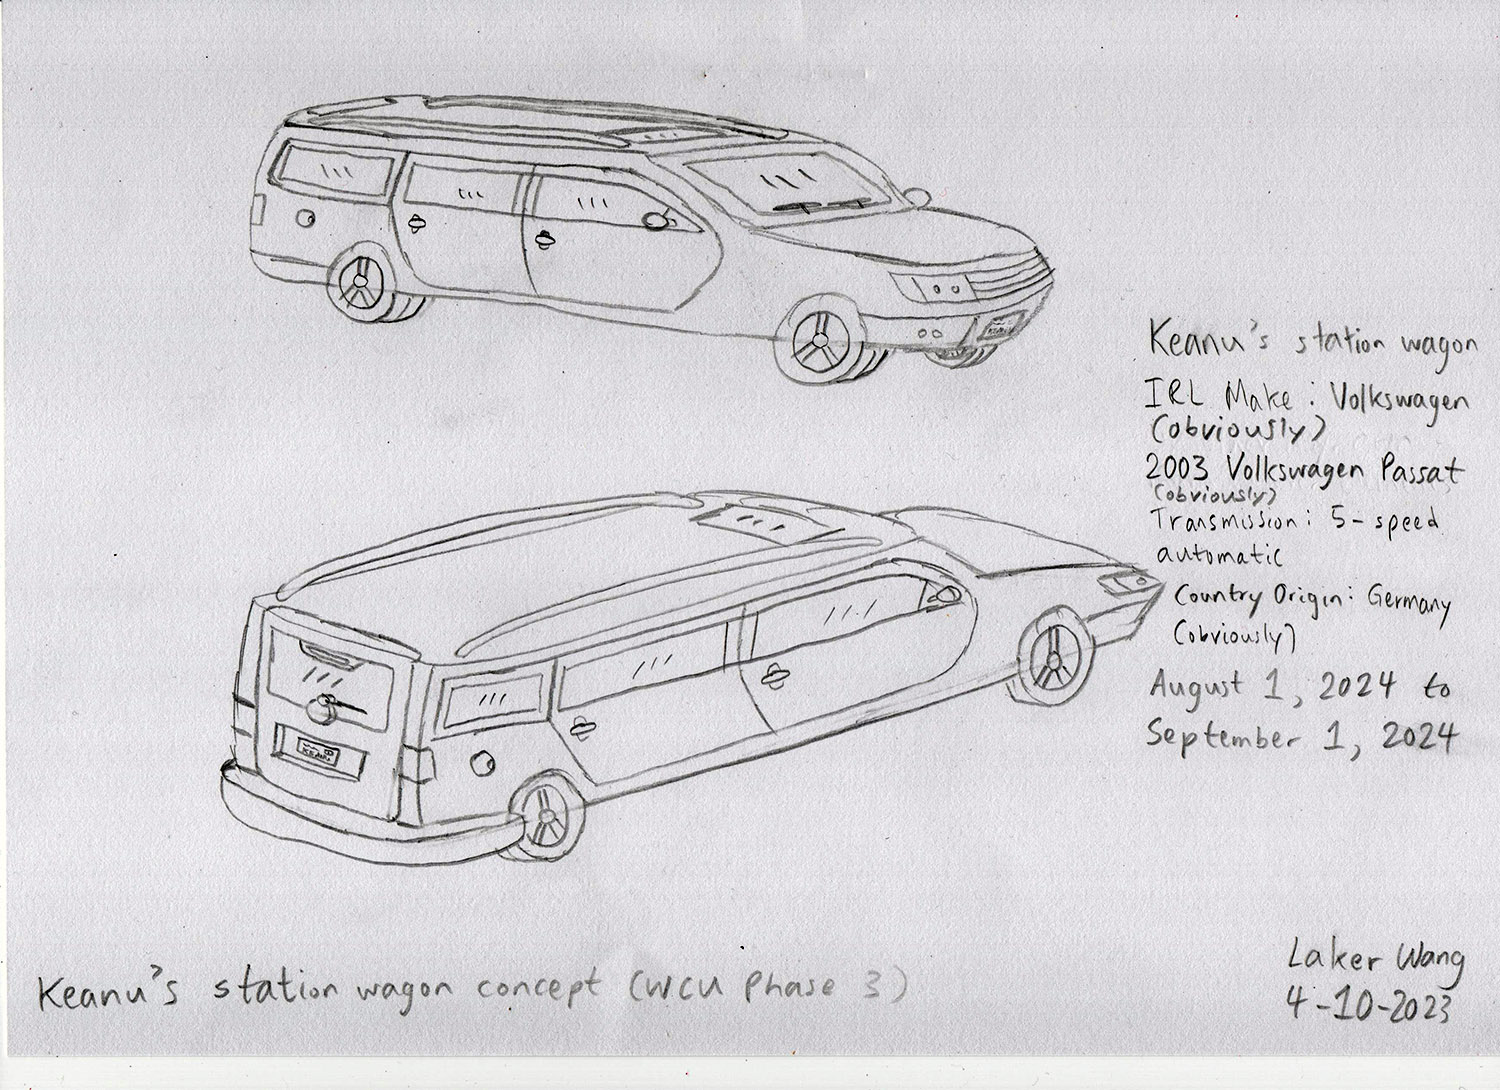 Keanu's station wagon
IRL Make: Volkswagen
(obviously)
2003 Volkswagen Passat
(obviously)
Transmission: 5-speed
automatic
Country Origin: Germany
(obviously)
August 1, 2024 to
September 1, 2024
Keanu's station wagon concept (WCU Phase 3)
Laker Wang
4-10-2023